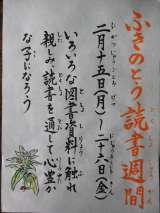 ふきのとう読書週間
二月十五日(月)~二十六日(金)
いろいろな図書資料に触れ
親しみ読書を通して心豊か
な子になろう